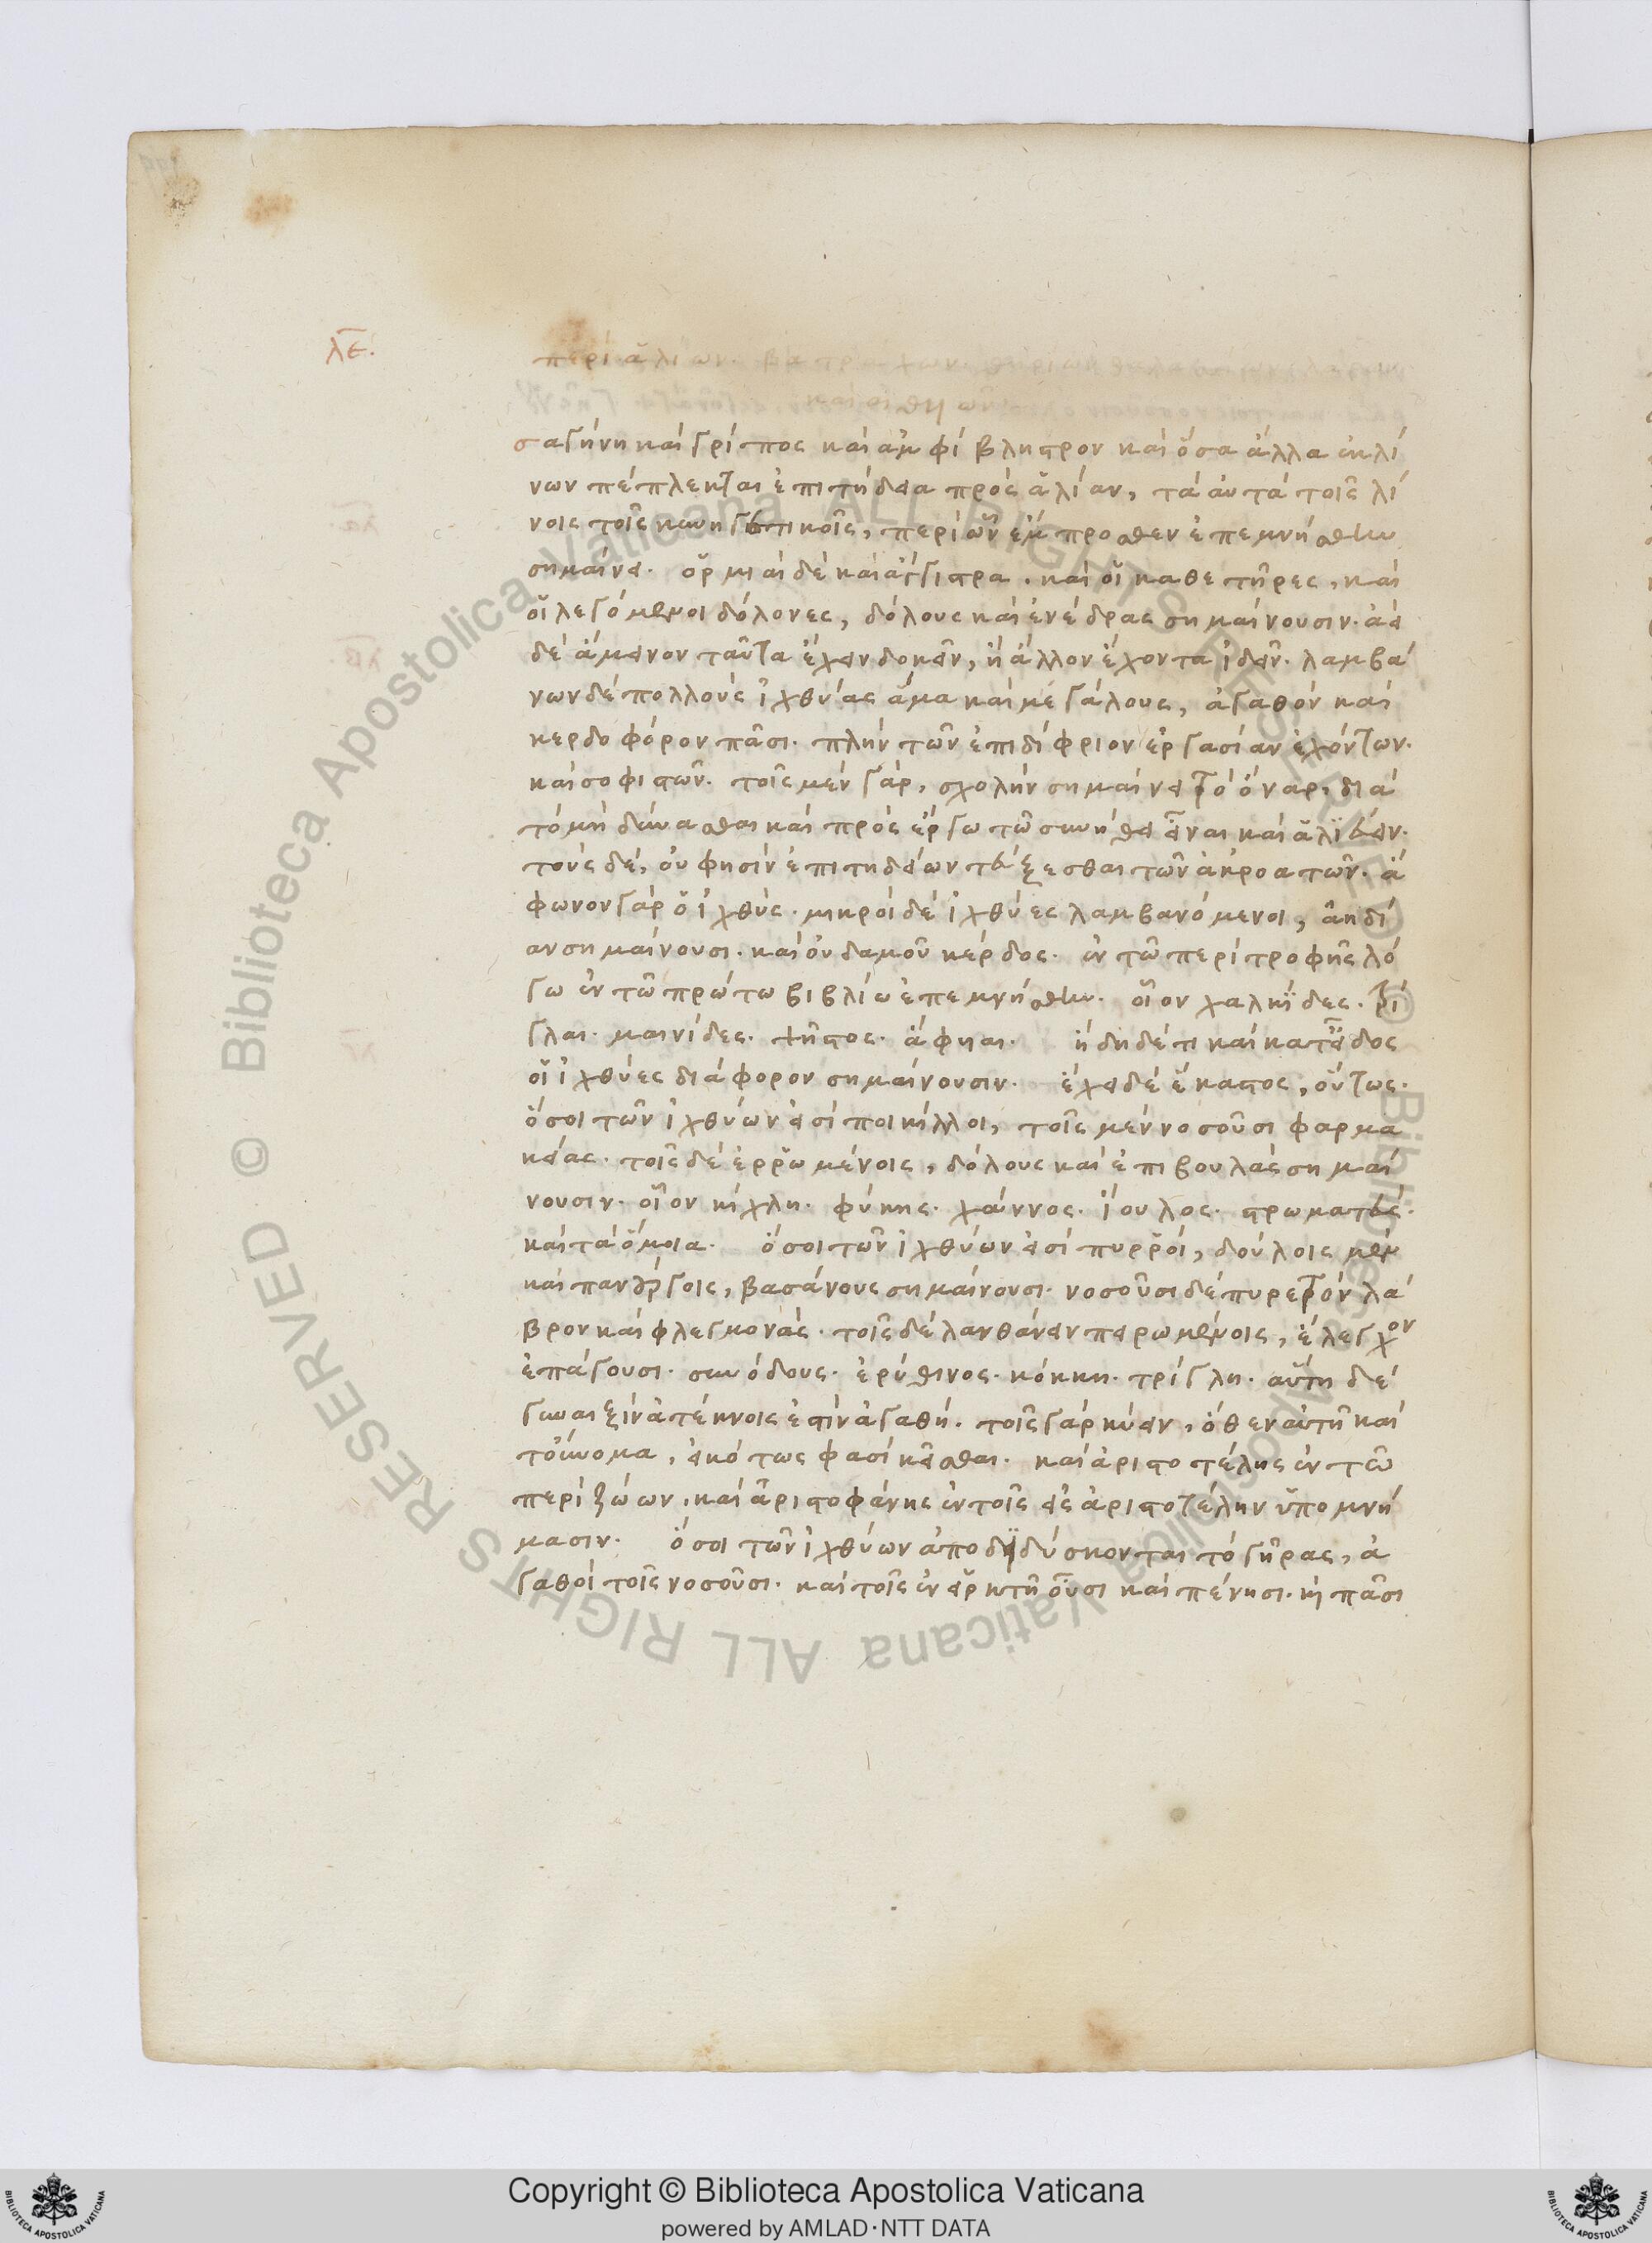 λε.
περὶ ἁλιῶν. βατράχων.
σαγήνη καὶ γρίπος καὶ ἀμφίβληστρον καὶ ὅσα ἄλλα ἐκ λί
νων πέπλεκται ἐπιτήδεια πρὸς ἁλίαν, τὰ αὐτὰ τοῖς λί
νοις τοῖς κυνηγετικοῖς, περὶ ὧν ἔμπροσθεν ἐπεμνήσθην
σημαίνει. ὁρμιαὶ δὲ καὶ ἄγγιστρα. καὶ οἱ καθετῆρες, καὶ
οἱ λεγόμενοι δόλονες, δόλους καὶ ἐνέδρας σημαίνουσιν. ἀεὶ
δὲ ἄμεινον ταῦτα ἔχειν δοκεῖν, ἢ ἄλλον ἔχοντα ἰδεῖν. λαμβά
νων δὲ πολλοὺς ἰχθύας ἅμα καὶ μεγάλους, ἀγαθὸν καὶ
κερδοφόρον πᾶσι. πλὴν τῶν ἐπιδίφριον ἐργασίαν ἐχόντων.
καὶ σοφιστῶν. τοῖς μὲν γὰρ, σχολὴν σημαίνει τὸ ὄναρ, διὰ
τὸ μὴ δύνασθαι καὶ πρὸς ἔργω τῶ συνήθει εἶναι καὶ ἁλϊεύειν.
τοὺς δὲ, οὐ φησὶν ἐπιτηδείων τεύξεσθαι τῶν ἀκροατῶν. ἄ
φωνον γὰρ ὁ ἰχθύς. μικροὶ δὲ ἰχθύες λαμβανόμενοι, ἀηδί
αν σημαίνουσι. καὶ οὐδαμοῦ κέρδος. ἐν τῶ περὶ τροφῆς λό
γω ἐν τῶ πρώτω βιβλίω ἐπεμνήσθην. οἷον χαλκΐδες. τρί
γλαι. μαινίδες. ψῆττος. ἄφηαι. ἤδη δὲ τι καὶ κατ' εἶδος
οἱ ἰχθύες διάφορον σημαίνουσιν. ἔχει δὲ ἕκαστος, οὕτως.
ὅσοι τῶν ἰχθύων εἰσὶ ποικίλλοι, τοῖς μὲν νοσοῦσι φαρμα
κείας. τοῖς δὲ ἐρρωμένοις, δόλους καὶ ἐπιβουλὰς σημαί
νουσιν. οἷον κίχλη. φύκης. χάννος. ἴουλος. στρωματεύς.
καὶ τὰ ὅμοια. ὅσοι τῶν ἰχθύων εἰσὶ πυρροὶ, δούλοις μὲν
καὶ πανούργοις, βασάνους σημαίνουσι. νοσοῦσι δὲ πυρετὸν λά
βρον καὶ φλεγμονάς. τοῖς δὲ λανθάνειν πειρωμένοις, ἔλεγχον
ἐπάγουσι. συνόδους. ἐρύθινος. κόκκη. τρίγλη. αὕτη δὲ
γυναιξὶν ἀτέκνοις ἐστὶν ἀγαθή. τρὶς γὰρ κύειν, ὅθεν αὐτῆ καὶ
τοὔνομα, εἰκότως φασὶ κεῖσθαι. καὶ ἀριστοτέλης ἐν τῶ
περὶ ζώων, καὶ ἀριστοφάνης ἐν τοῖς εἰς ἀριστοτέλην ὑπομνή
μασιν. ὅσοι τῶν ἰχθύων ἀποδιδύσκονται τὸ γῆρας, ἀ
γαθοὶ τοῖς νοσοῦσι. καὶ τοῖς ἐν εἱρκτῆ οὖσι καὶ πένησι. καὶ πᾶσι
© Biblioteca Apostolica Vaticana ALL RIGHTS RESERVED
© Biblioteca Apostolica Vaticana ALL RIGHTS RESERVED
Copyright © Biblioteca Apostolica Vaticana
powered by AMLAD·NTT DATA
BIBLIOTECA APOSTOLICA VATICANA
BIBLIOTECA APOSTOLICA VATICANA